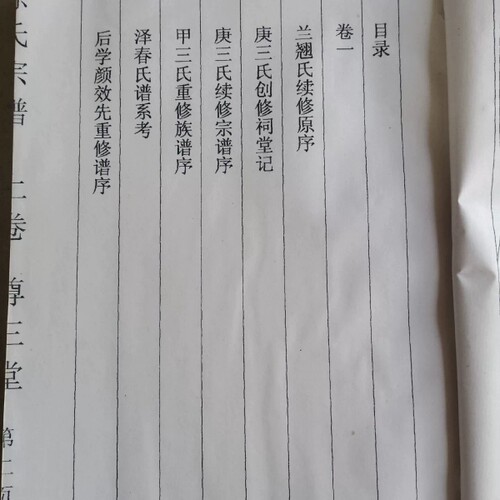 目录
卷一
兰翘氏续修原序
庚三氏创修祠堂记
庚三氏续修宗谱序
甲三氏重修族谱序
泽春氏谱系考
后学颜效先重修谱序
氏宗谱 二卷 尊三堂 第二页